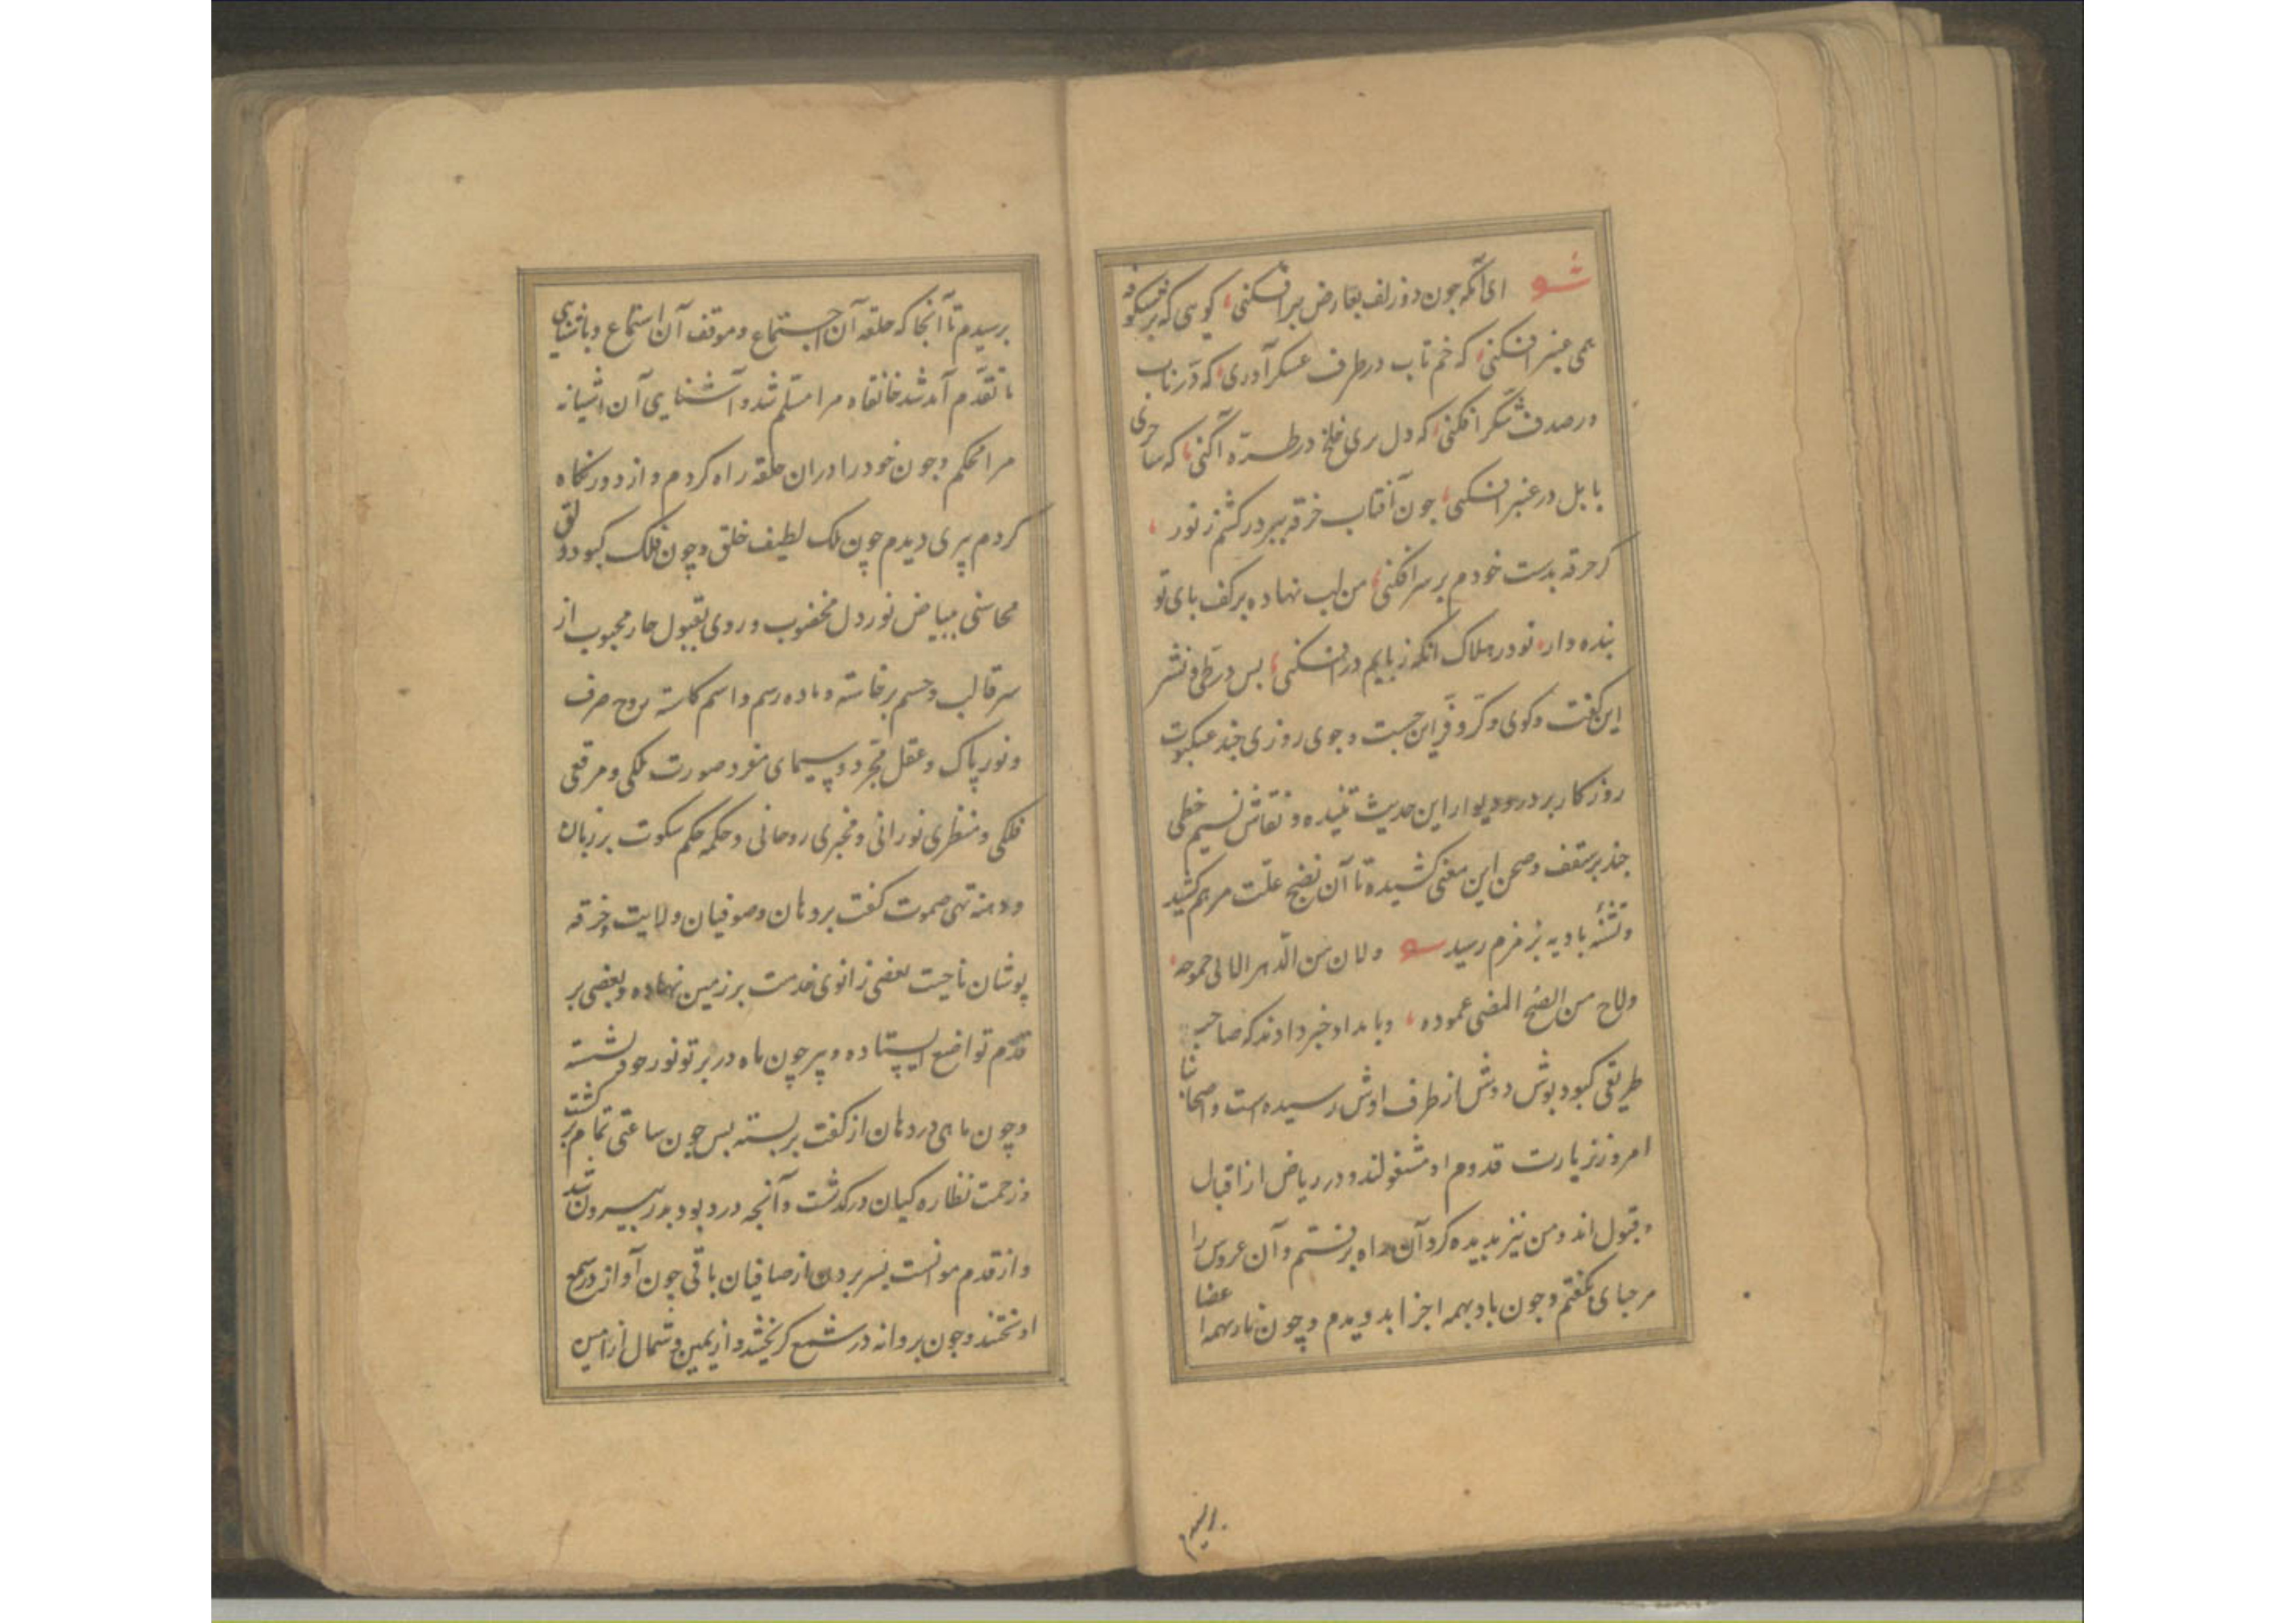 شعر ای آنکه چون دو زلف بعارض برافکنی کوسی که بر شکوفه
همی عنبر افکنی که خم تاب در طرف عسکر آوری که درناب
در صدف شکر افکنی که دل بری خلخ در طره آکنی که ساحری
بابل در عنبر افکنی چون آفتاب خرقه ببر در کشم ز نور
کر خرقه بدست خودم بر سر افکنی من لب نهاده بر کف بای تو
بنده وار تو در هلاک انکه ز بایم در افکنی بس در طی و نشر
این کفت و کوی و کر و فر این جست و جوی روزی چند عنکبوت
روزکار بر در و دیوار این حدیث تنیده و نقاش نسیم خطی
چند بر سقف و صحن این معنی کشیده تا آن نضج علت مرهم کشید
و تشنه بادیه بزمزم رسید شعر ولان من الدهر الالی جموحه
ولاح من الصبح المضی عموده و بامداد خبر دادند که صاحب
طریقی کبود بوش دوش از طرف اوش رسیده است و اصحاب ما
امروز زیارت قدوم او مشغولند و در ریاض از اقبال
و قبول اند و من نیز بدیده کرد آن راه برفتم و آن عروس را
مرحبای بکفتم و چون باد بهمه اجزا بدویدم و چون نار بهمه اعضا
برسیدم
برسیدم تا آنجا که حلقه آن اجتماع و موقف آن استماع و باشناسی
ما تقدم آمد شد خانقاه مرا مسلم شد و آشنایی آن اشیانه
مرا محکم و چون خود را دران حلقه راه کردم و از دور نکاه
کردم پیری دیدم چون ملک لطیف خلق و چون فلک کبود دلق
محاسنی ببیاض نور دل مخضوب و روی بقبول محبوب از
سر قالب و جسم برخاسته و ماده رسم و اسم کاسته روح صرف
و نور پاک و عقل مجرد و سیمای مفرد صورت ملکی و مرقعی
فلکی و منظری نورانی و مخبری روحانی و حکمه حکم سکوت بر زبان
و دمنه تهی صموت کفت بر دهان و صوفیان ولایت و خرقه
پوشان ناحیت بعضی زانوی خدمت بر زمین نهاده و بعضی بر
قدم تواضع ایستاده و پیر چون ماه در برتو نور خود نشسته
و چون ماهی در دهان از کفت بر بسته بس چون ساعتی تمام بر کشت
و زحمت نظاره کیان در کذشت و آنچه درد بود بدر بیرون شد
و از قدم موانست بسر بردن از صافیان باقی چون آواز در سمع
اوختند و چون بروانه در شمع کریختند و از یمین و شمال از امین